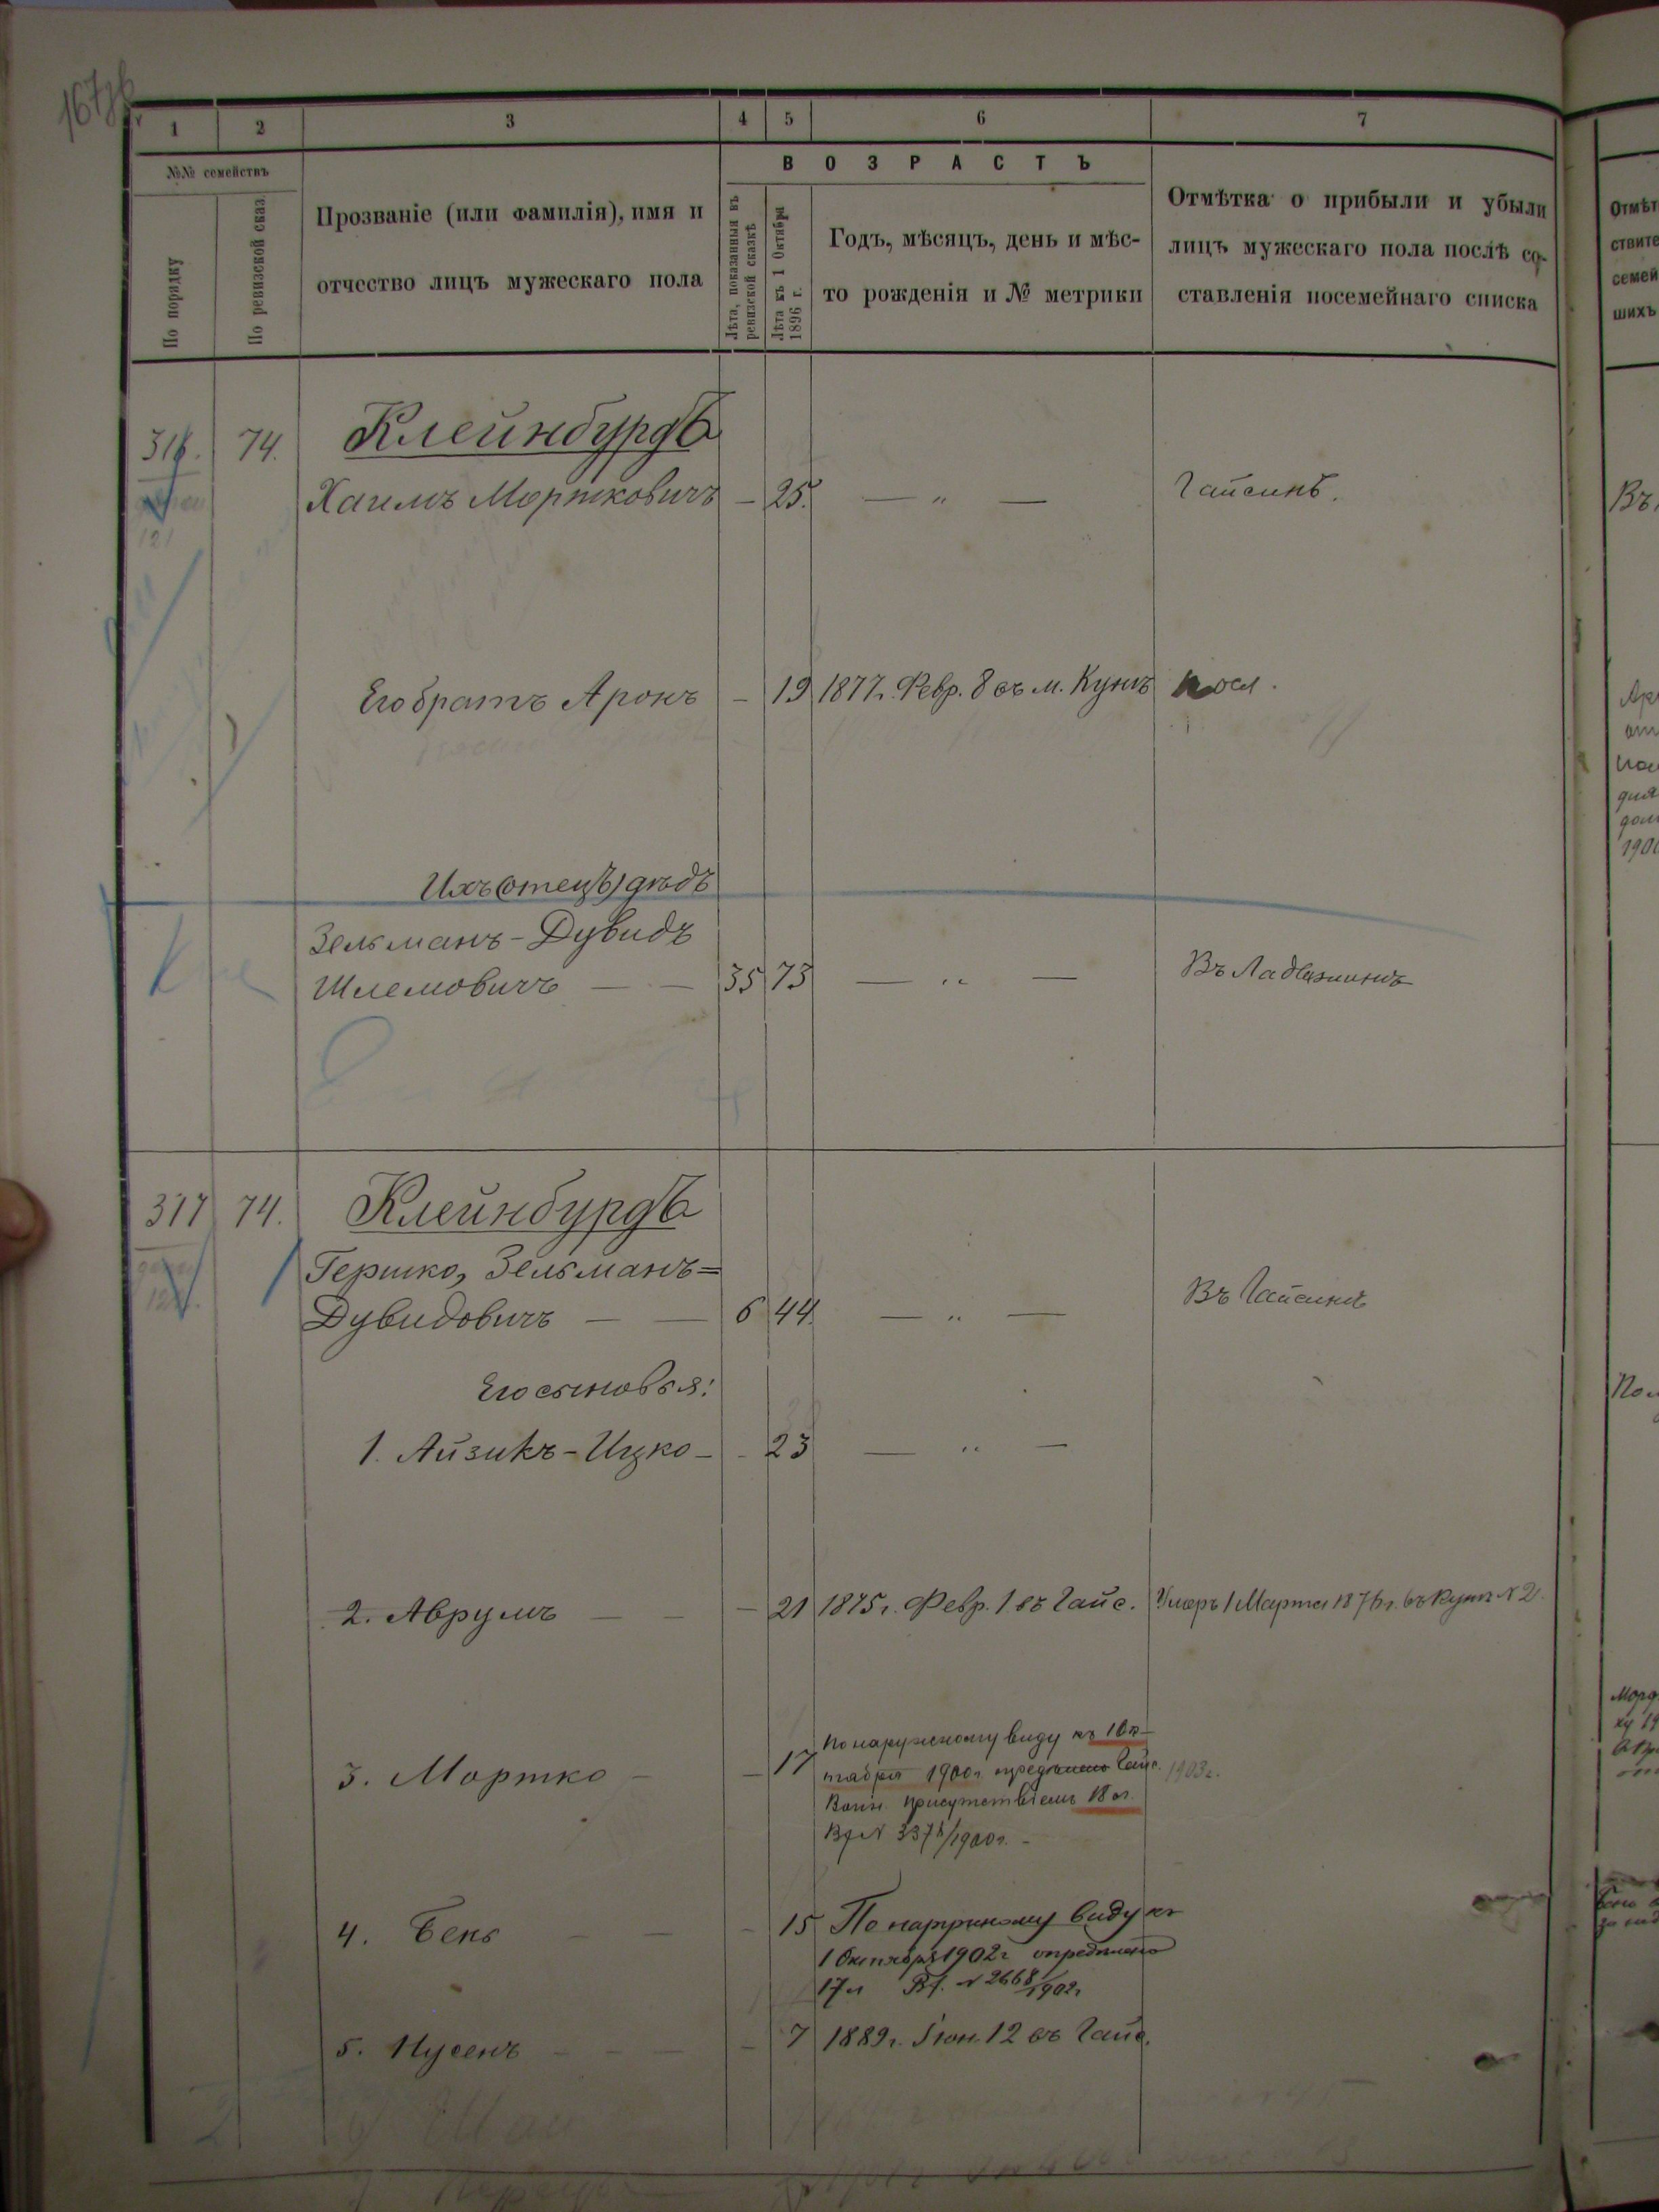 1 2 3 4 5 6 7
№№ семействъ
По порядку
По ревизской сказ.
Прозваніе (или фамилія), имя и
отчество лицъ мужескаго пола
ВОЗРАСТЪ
Лѣта, показанныя въ
ревизской сказкѣ
Лѣта къ 1 Октября
1896 г.
Годъ, мѣсяцъ, день и мѣс-
то рожденія и № метрики
Отмѣтка о прибыли и убыли
лицъ мужескаго пола послѣ со-
ставленія посемейнаго списка
316. 74. Клейнбурдъ
Хаимъ Мортковичъ — 25. — " — Гайсинѣ.
121
Его братъ Аронъ — 19 1877 г. Февр. 8 въ м. Кунѣ
Ихъ (отецъ) дѣдъ
Зельманъ-Дувидъ
Шлемовичъ — — 35 73 — " — Въ Ладыжинѣ
317 74. Клейнбурдъ
Гершко, Зельманъ=
Дувидовичъ — — 6 44. — " — Въ Гайсинѣ
Его сыновья:
1. Айзикъ-Ицко — - 23 — " —
2. Аврумъ — — — 21 1875 г. Февр. 1 въ Гайс. Умеръ 1 Марта 1876 г. въ Кунѣ № 2.
3. Мортко — — 17 По наружному виду къ 1 Ок-
тября 1900 г. Гайс. 1903 г.
Воин. присутствіемъ 18 л.
Вх № 3378/1900 г. -
4. Бень — — - 15 По наружному виду къ
1 Октября 1902 г. опредѣлено
17 л Вх. № 2668/1902 г
5. Нусенъ - - — — 7 1889 г. Іюн. 12 въ Гайс.